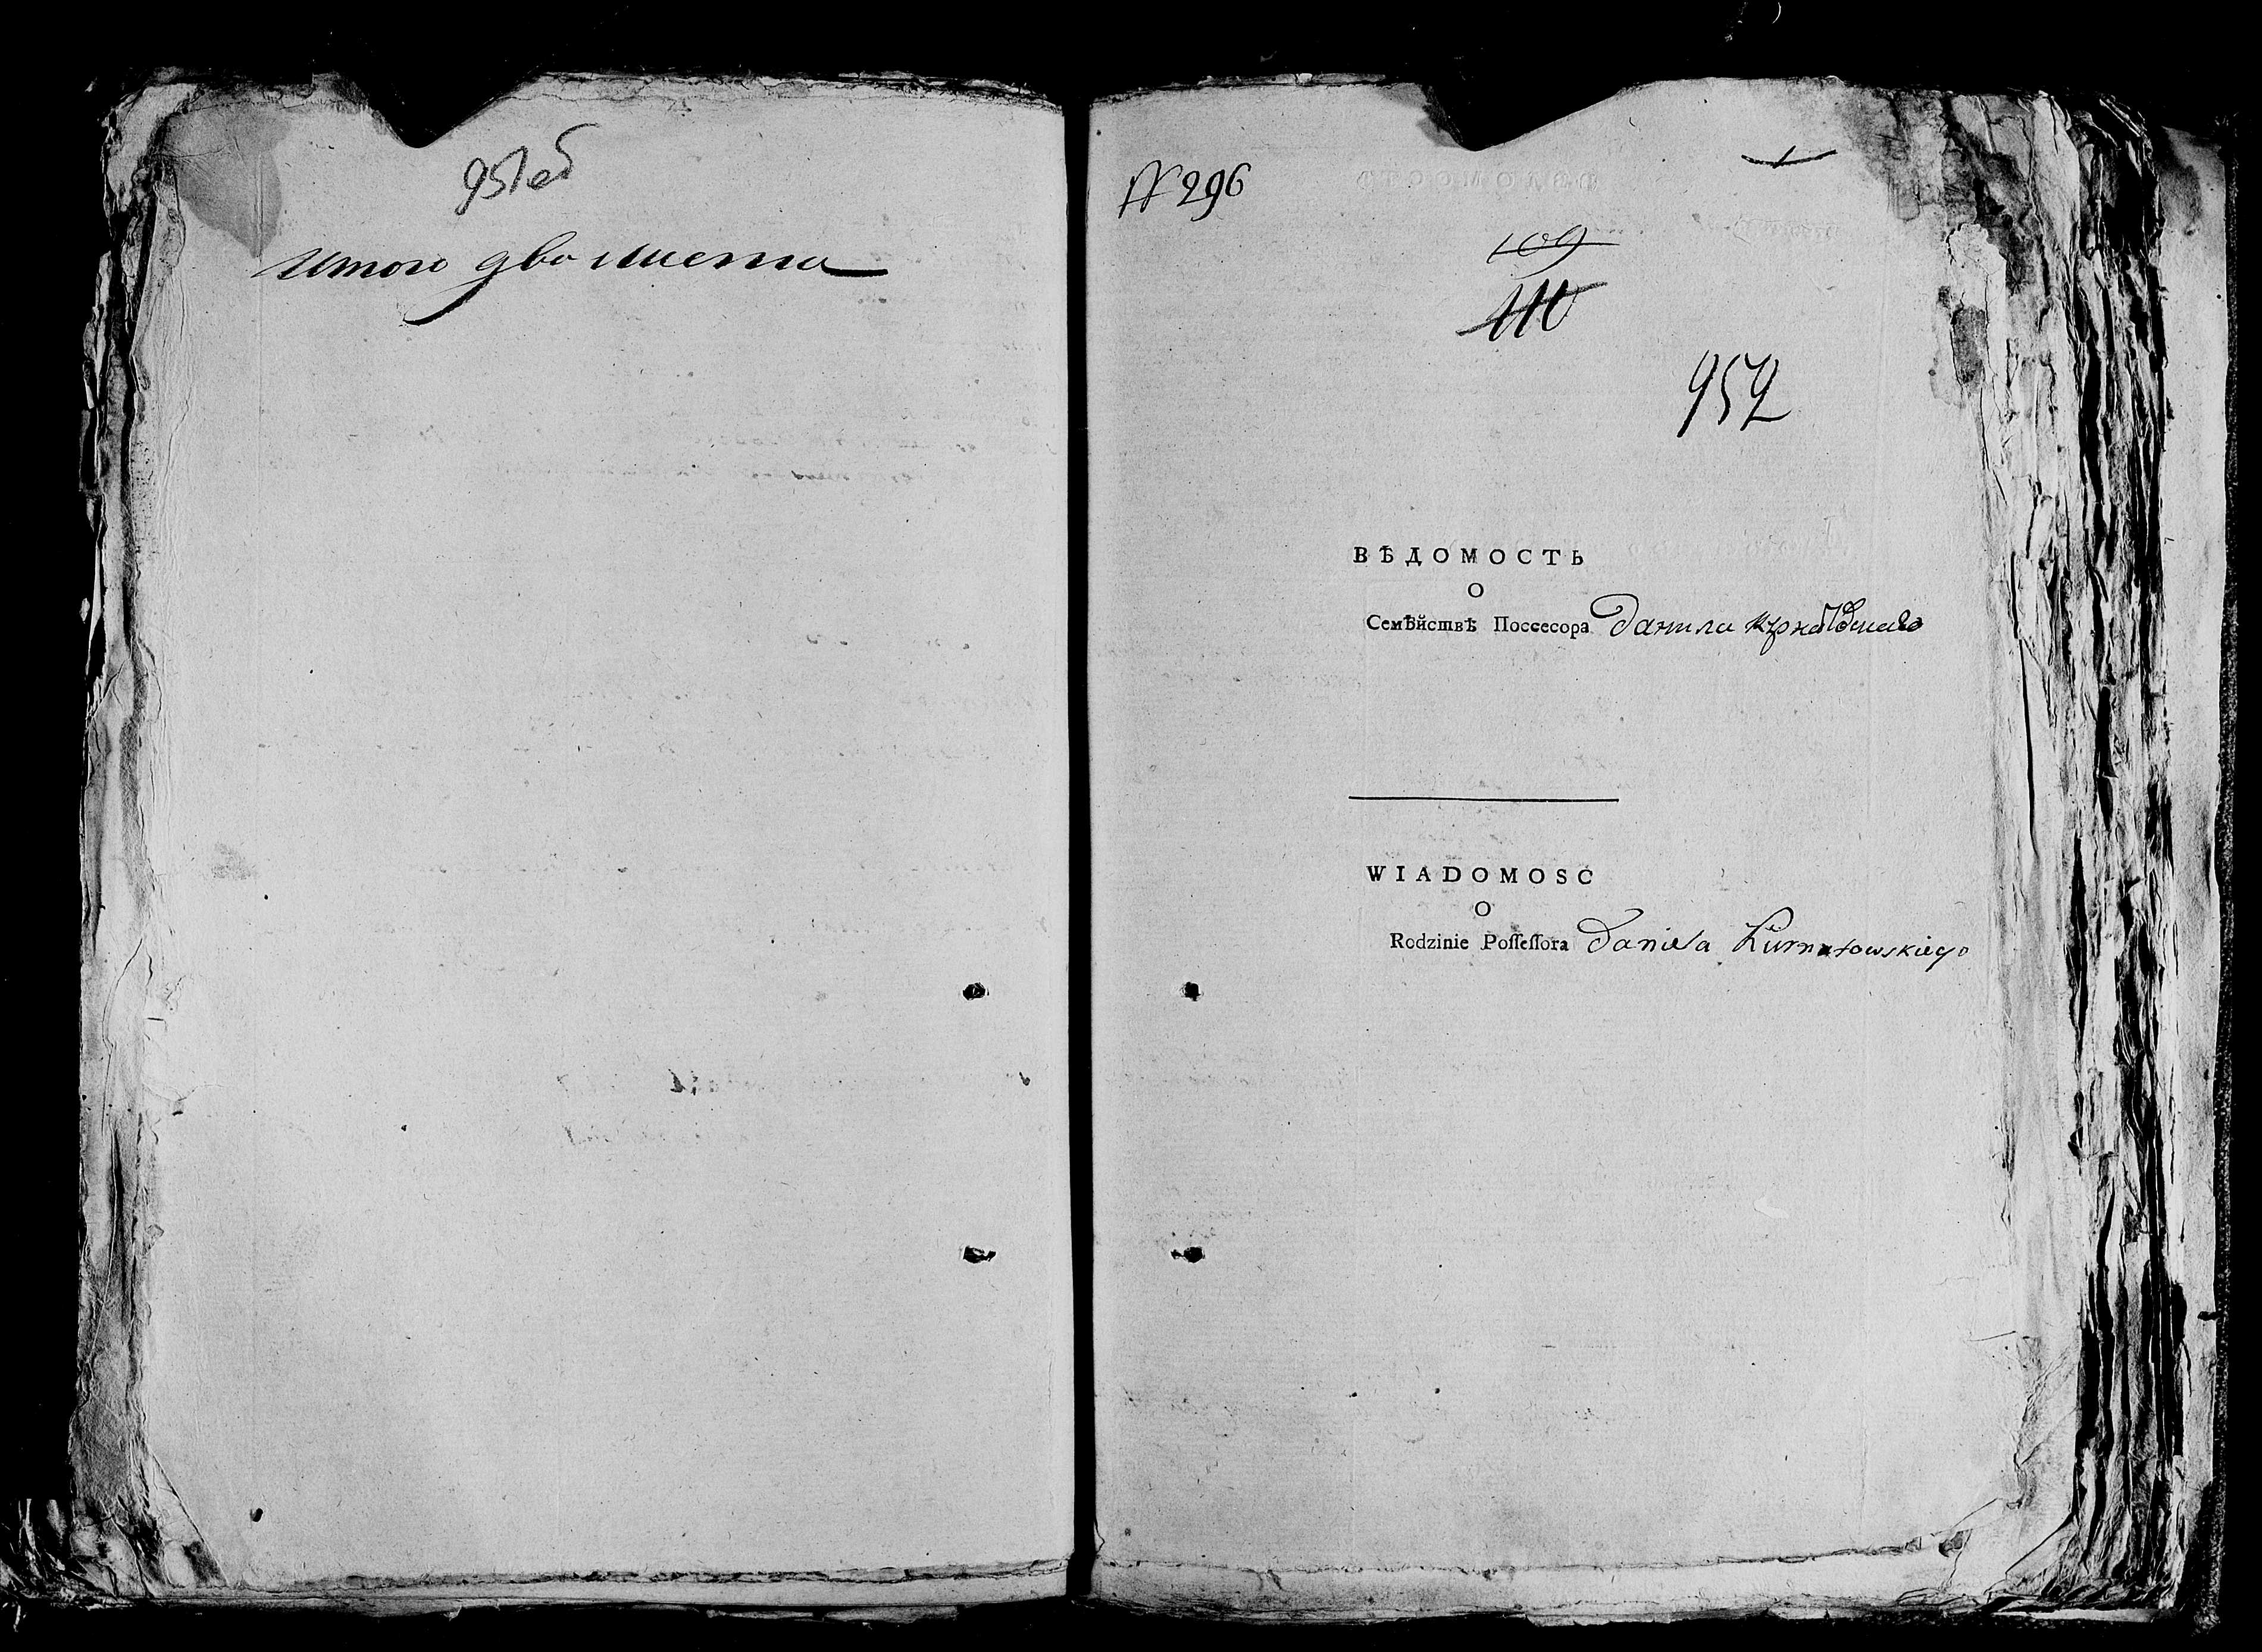 951об
Итого два листа
N 296
109
110
952
ВѢДОМОСТЬ
О
Семѣйствѣ Поссесора Данила
WIADOMOSC
O
Rodzinie Poſſeſſora Daniela Kurnatowskiego